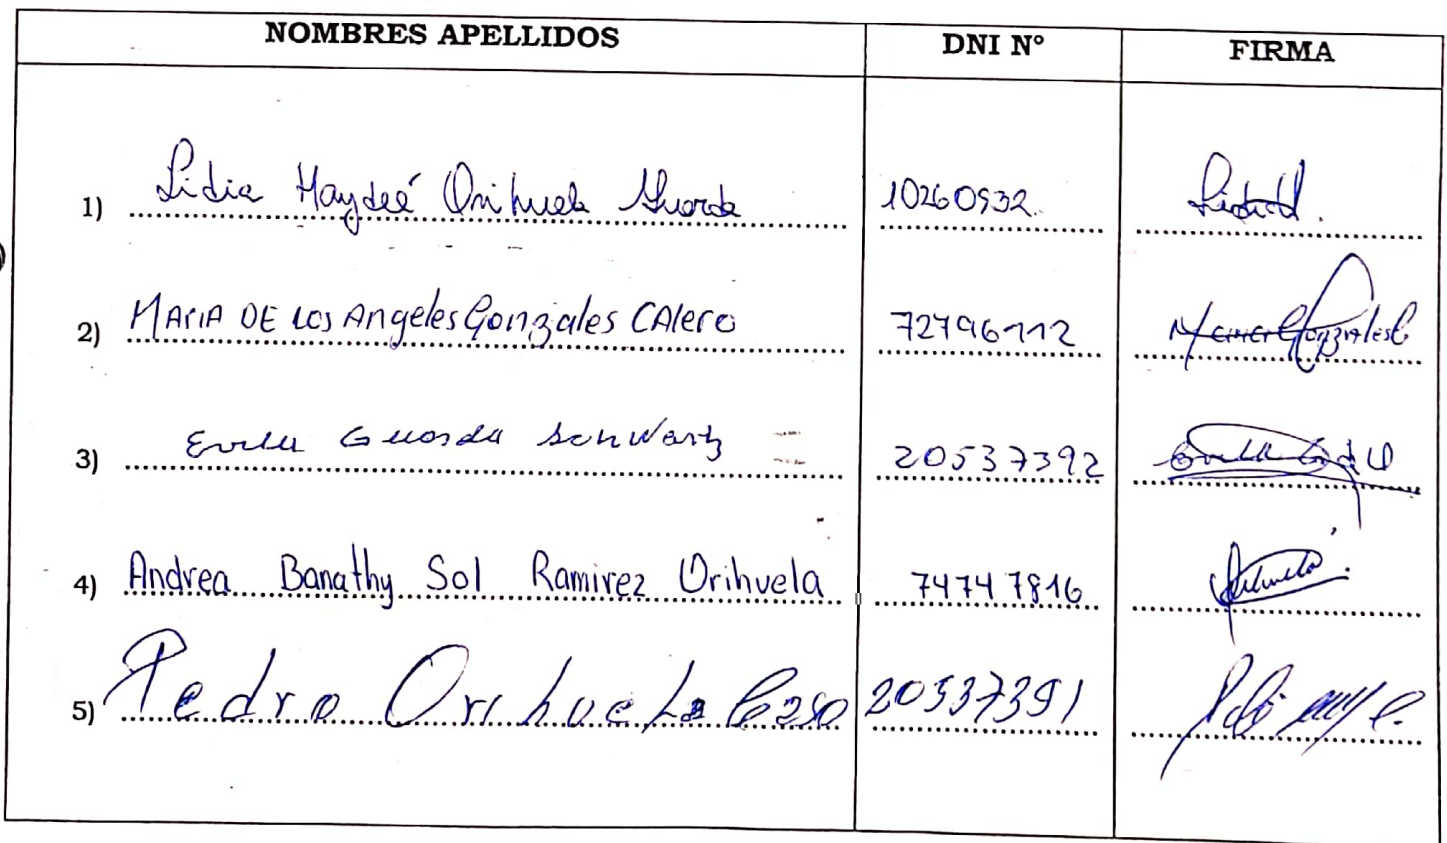 NOMBRES APELLIDOS DNI Nº FIRMA
1) Lidia Haydeé Orihuela Guarda 10260932
2) MARIA DE LOS Angeles Gonzales CAlero 72796112
3) Evila Guarda Schwartz 20537392
4) Andrea Banathy Sol Ramirez Orihuela 74747816
5) Pedro Orihuela Caso 20537391